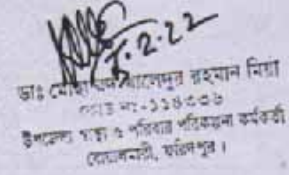 ৮.২.২২
ডাঃ মোহাম্মদ খালেদুর রহমান মিয়া
কোড নং-১১৪৩৩৬
উপজেলা স্বাস্থ্য ও পরিবার পরিকল্পনা কর্মকর্তা
বোয়ালমারী, ফরিদপুর।